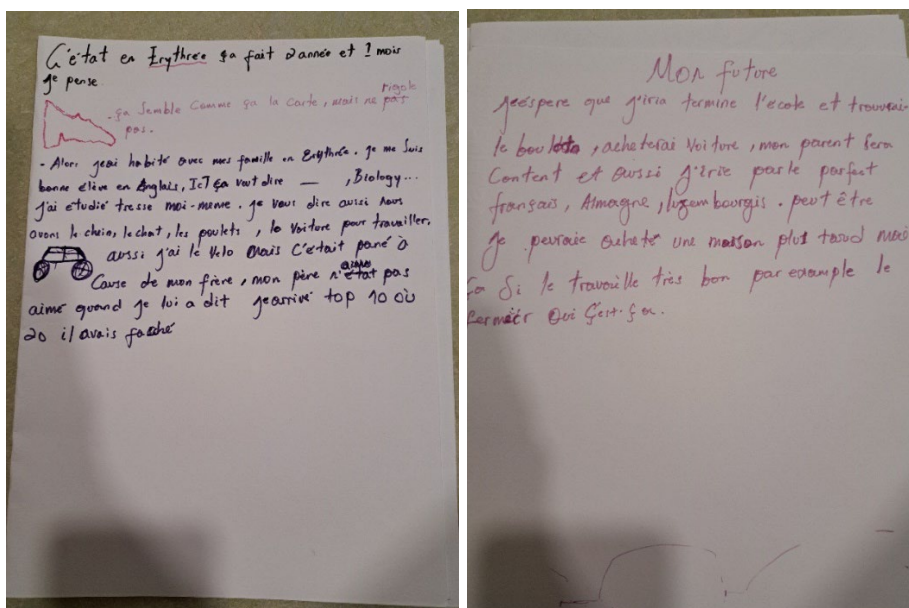 C'était en Erythrée ça fait 2 année et 1 mois
je pense
rigole
- ça semble comme ça la carte, mais ne pas
pas.
- Alors jeai habité avec mes famille en Erythrée. je me suis
bonne élève en Anglais, ICT ça veut dire — , Biology...
j'ai étudié tresse moi-meme. je vous dire aussi nous
avons le chein, le chat, les poulets, la voiture pour travailler,
aussi j'ai le velo mais c'était pané à
cause de mon frère, mon père n'était pas
aimé quand je lui a dit jearrivé top 10 où
20 il avais faché
Mon future
jeéspere que j'iria termine l'école et trouverai
le boulot, acheterai voiture, mon parent sera
content et aussi j'irie parle parfect
français, Almagne, luxembourgis. peut être
je peuraie acheté une maison plus tard mais
ça si le travaille très bon par example le
fermeir oui c'est ça.